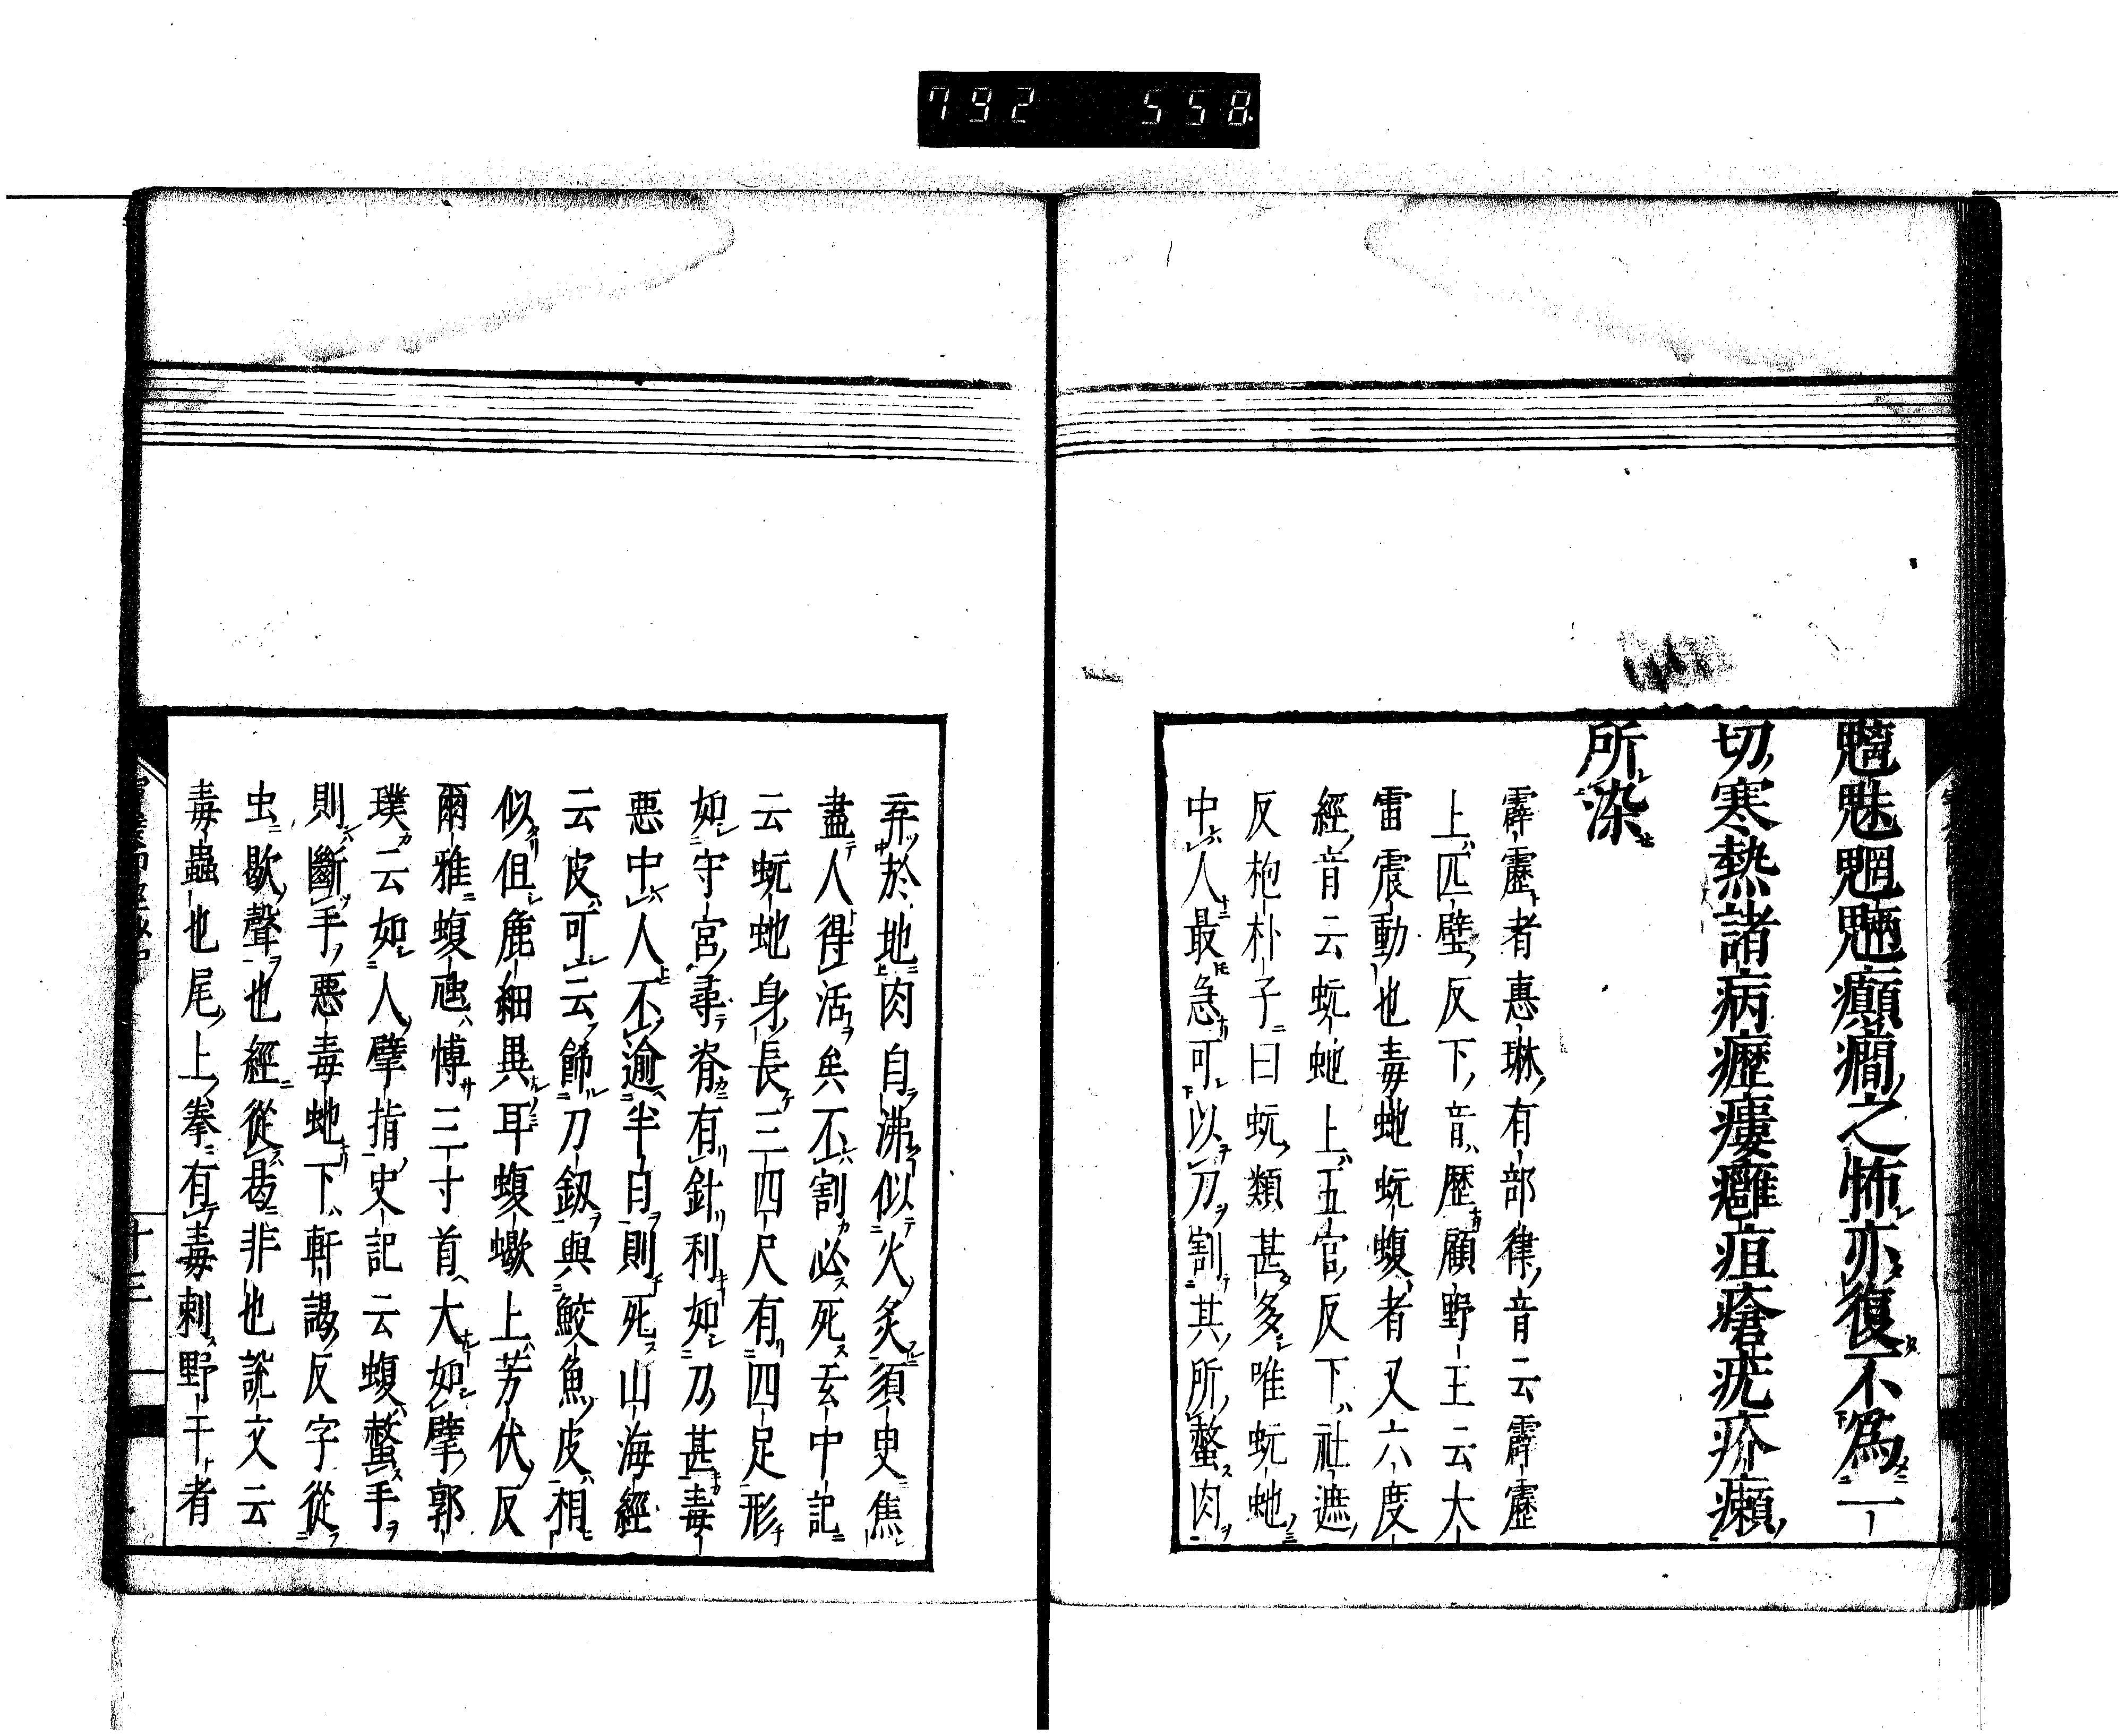 792 558
魑魅魍魎癲癇之怖亦復不爲一
切寒熱諸病瘂瘻癰疽瘡疣疥癩
所染
霹靂者惠琳有部律音云霹靂
上匹壁反下音歷顧野王云大
雷震動也毒虵蚖蝮者又六度
經音云蚖虵上五官反下社遮
反枹朴子曰蚖類甚多唯蚖虵
中人最急可以刀割其所螫肉
弃於地肉自沸似火炙須臾焦
盡人得活矣不割必死玄中記
云蚖虵身長三四尺有四足形
如守宮尋脊有針利如刀甚毒
惡中人不逾半日則死山海經
云皮可云飾刀釰與鮫魚皮相
似但麁細異耳蝮蠍上芳伏反
爾雅蝮虺博三寸首大如擘郭
璞云如人擘指史記云蝮螫手
則斷手惡毒虵下軒謁反字從
虫歇聲也經從曷非也說文云
毒蟲也尾上拳有毒刺野干者
十三